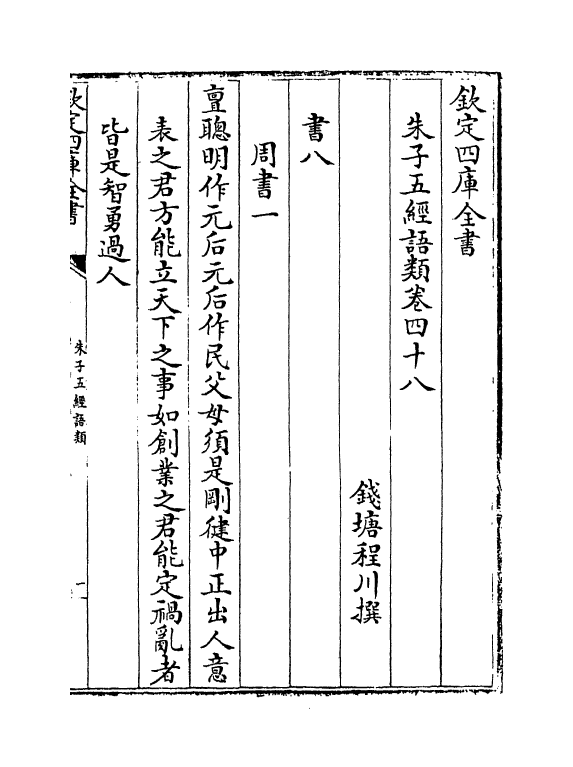 欽定四庫全書
朱子五經語類卷四十八
錢塘程川撰
書八
周書一
亶聰明作元后元后作民父母須是剛健中正出人意
表之君方能立天下之事如創業之君能定禍亂者
皆是智勇過人
欽定四庫全書
朱子五經語類
一